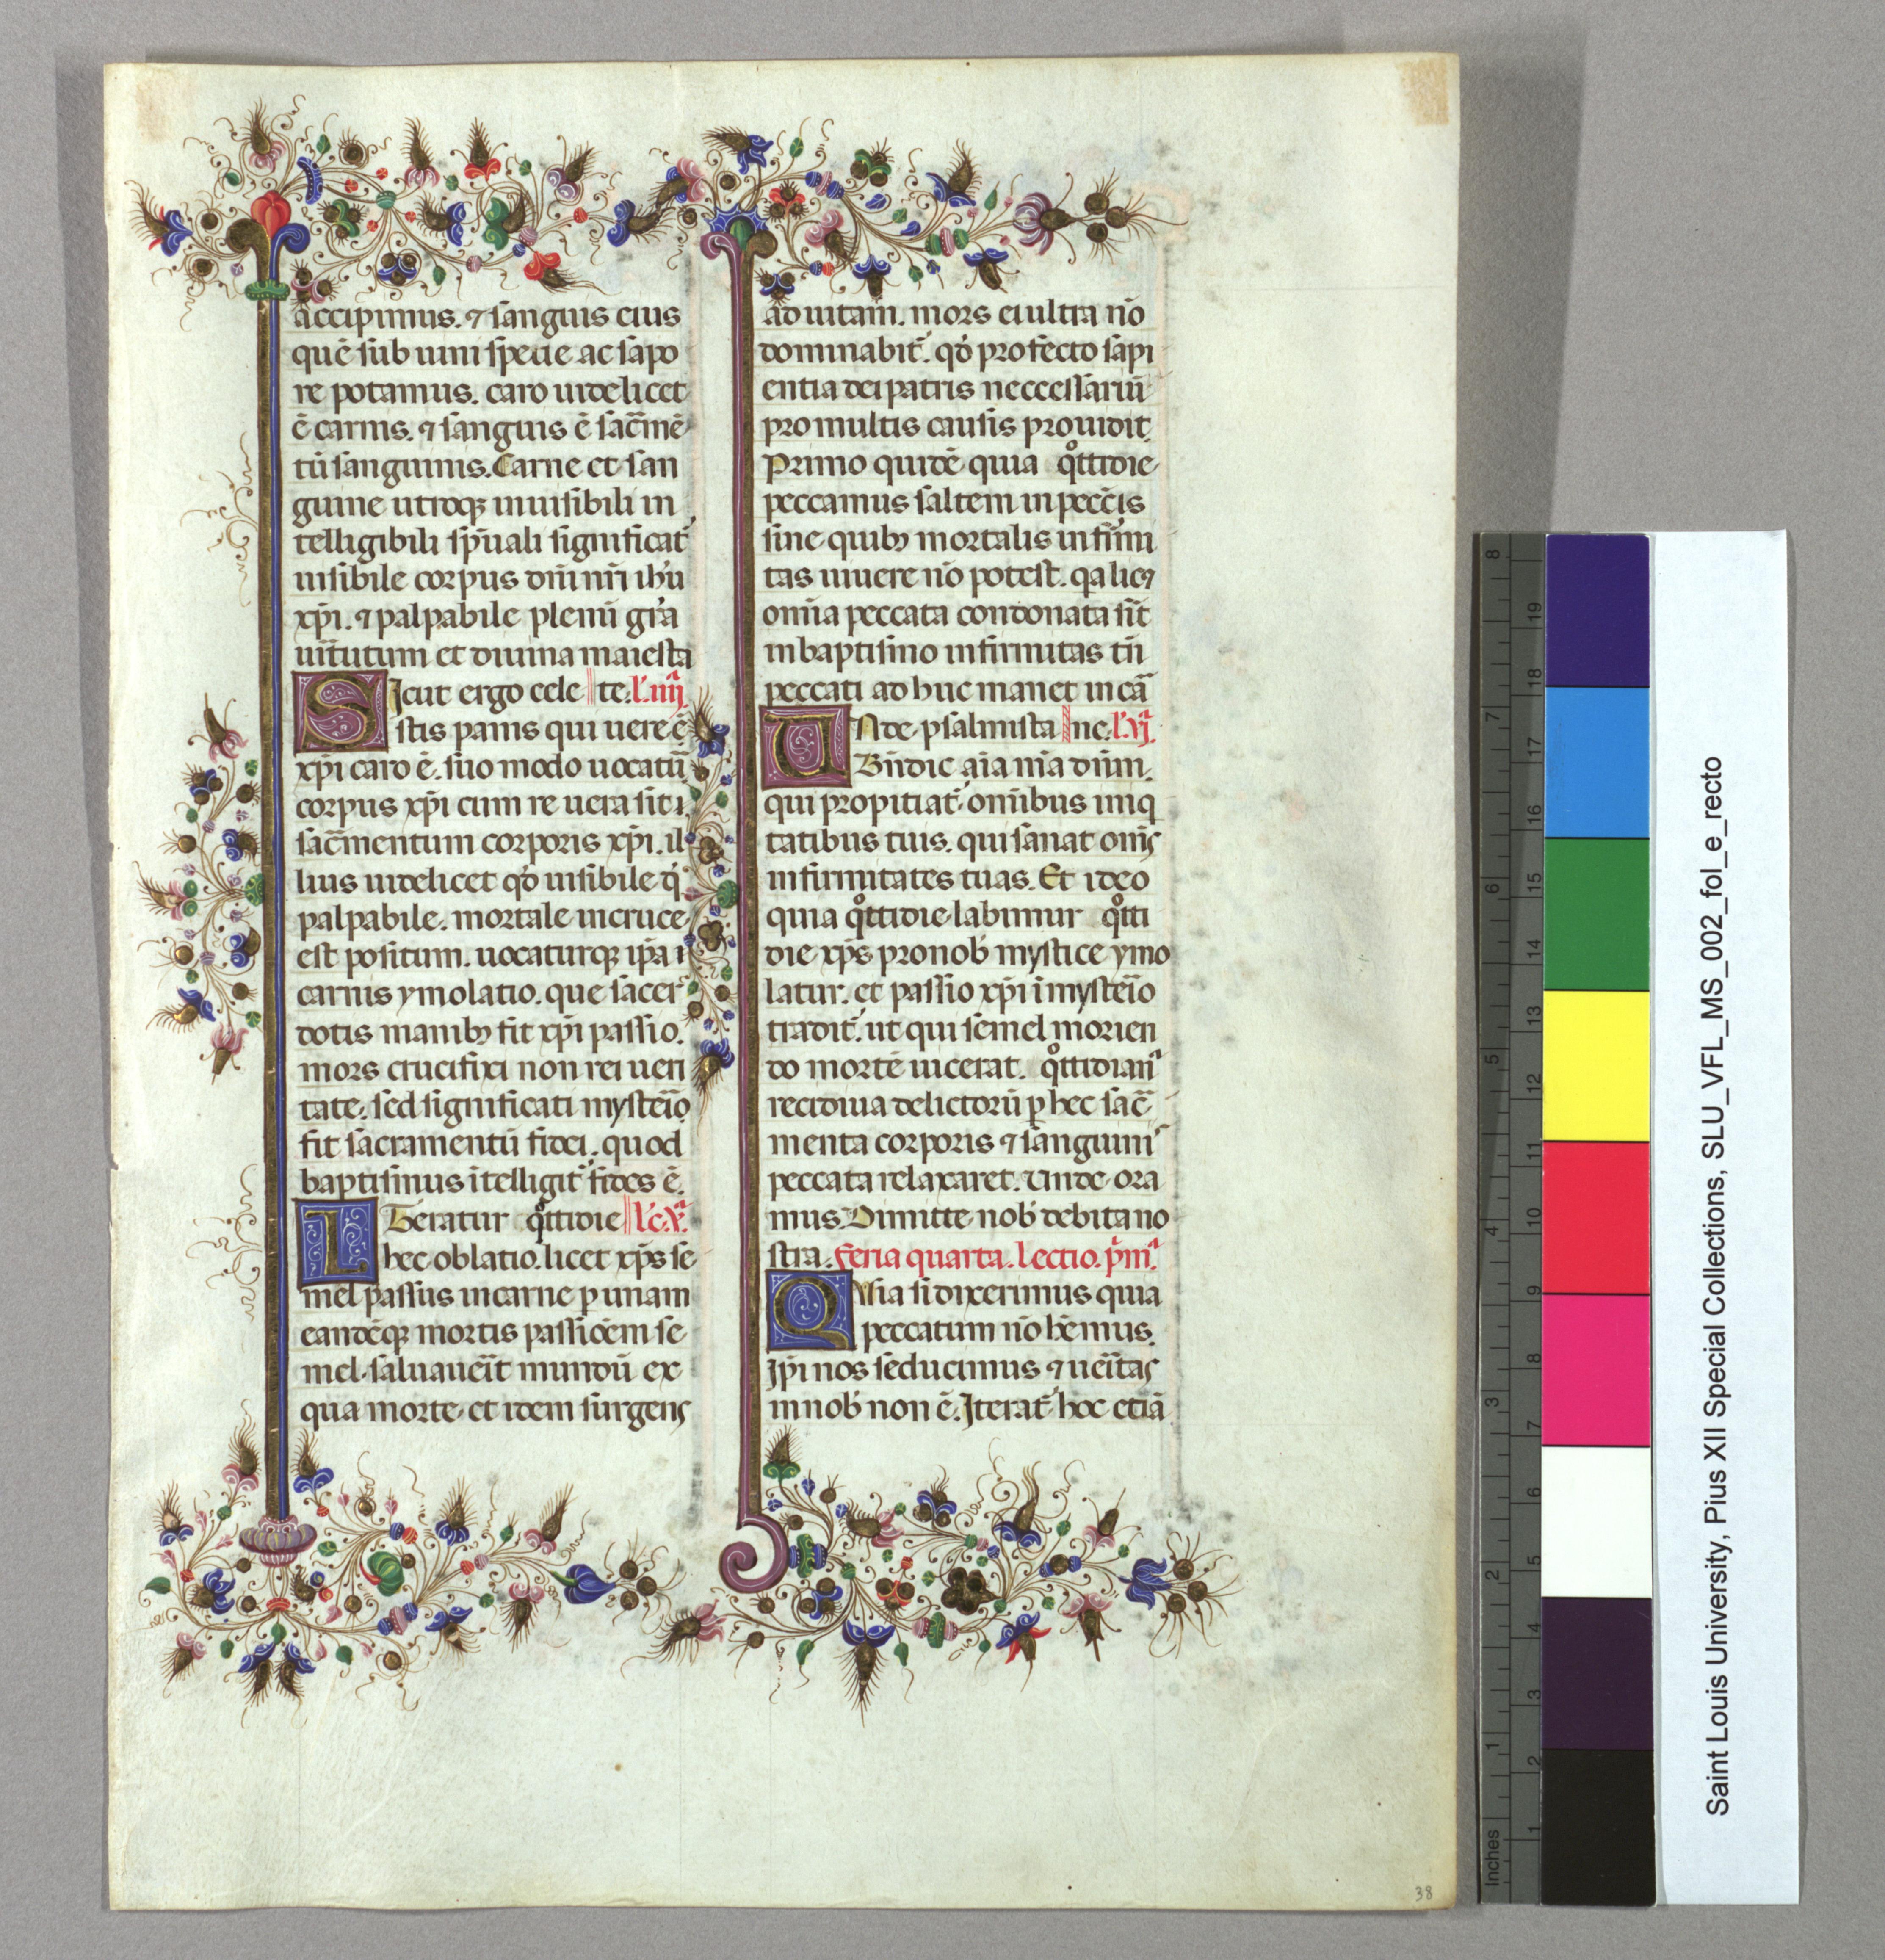 accipimus. ⁊ sanguis eius
quē sub uini specie ac sapo
re potamus. caro uidelicet
ē carnis. ⁊ sanguis ē sac̄mē
tū sanguinis. Carne et san
guine utroqꝫ inuisibili in
telligibili sp̄uali significat᷑
uisibile corpus dn̄i nr̄i ih̄u
xp̄i. ⁊ palpabile plenū gr̄a
uir̄tutum et diuina maiesta
Sicut ergo cele te. l'. iiijª.
stis panis qui uere ē
xp̄i caro ē. suo modo uocatū
corpus xp̄i cum re uera sit
sac̄mentum corporis xp̄i. il
lius uidelicet qđ uisibile q̇
palpabile. mortale in cruce
est positum. uocaturqꝫ ip̄a
carnis ymolatio. que sacer
dotis manibꝫ fit xp̄i passio.
mors crucifixi non rei ueri
tate. sed significati mysteīo
fit sacramentū fidei. quod
baptismus ītelligit᷑ fides ē.
ITeratur qͦttidie l'c. vª.
hec oblatio. licet xp̄s se
mel passus in carne ꝑ unam
eandēqꝫ mortis passiōem se
mel saluauer̄it mundū ex
qua morte et idem surgens
ad uitam. mors ei ultra nō
dominabit᷑. qđ profecto sapi
entia dei patris neccessariū
pro multis causis prouidit.
Primo quidē quia qͦttidie
peccamus saltem in pecc̄is
sine quibꝫ mortalis infirmi
tas uiuere nō potest. qa licꝫ
om̄ia peccata condonata sīt
in baptismo infirmitas tn̄
peccati adhuc manet in cā
UNde psalmista ne. l'. vjª.
Bn̄dic aīa mīa dn̄m.
qui propitiat᷑ om̄ibus iniq
tatibus tuis. qui sanat om̄s
infirmitates tuas. Et ideo
quia qͦttidie labimur qͦtti
die xp̄s pro nob̄ mystice ymo
latur. et passio xp̄i ī mysteīo
tradit᷑. ut qui semel morien
do mortē uicerat. qͦttidiana
recidiua delictorū ꝑ hec sac̄
menta corporis ⁊ sanguinis
peccata relaxaret. Unde ora
mus. Dimitte nob̄ debita no
stra. Feria quarta. Lectio. p̄mª.
QUia si dixerimus quia
peccatum nō hēmus.
Ip̄i nos seducimus ⁊ uer̄itas
in nob̄ non ē. Iterat᷑ hoc etiā
38
Saint Louis University, Pius XII Special Collections, SLU_VFL_MS_002_fol_e_recto
Inches
1 2 3 4 5 6 7 8
1 2 3 4 5 6 7 8 9 10 11 12 13 14 15 16 17 18 19